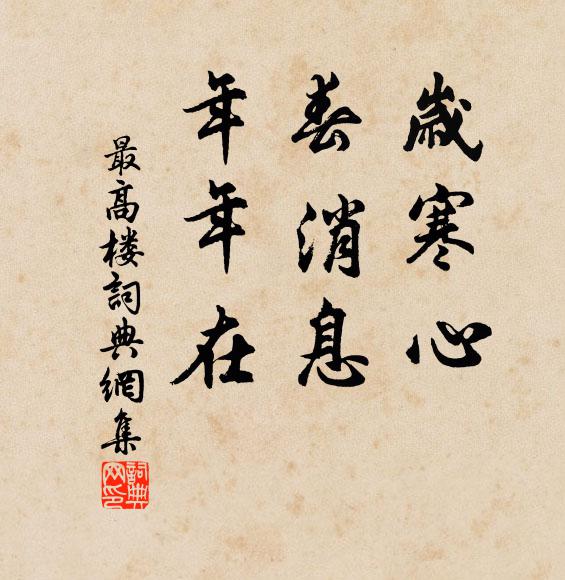 歲寒心
春消息
年年在
最高楼詞典網集
詞典网印